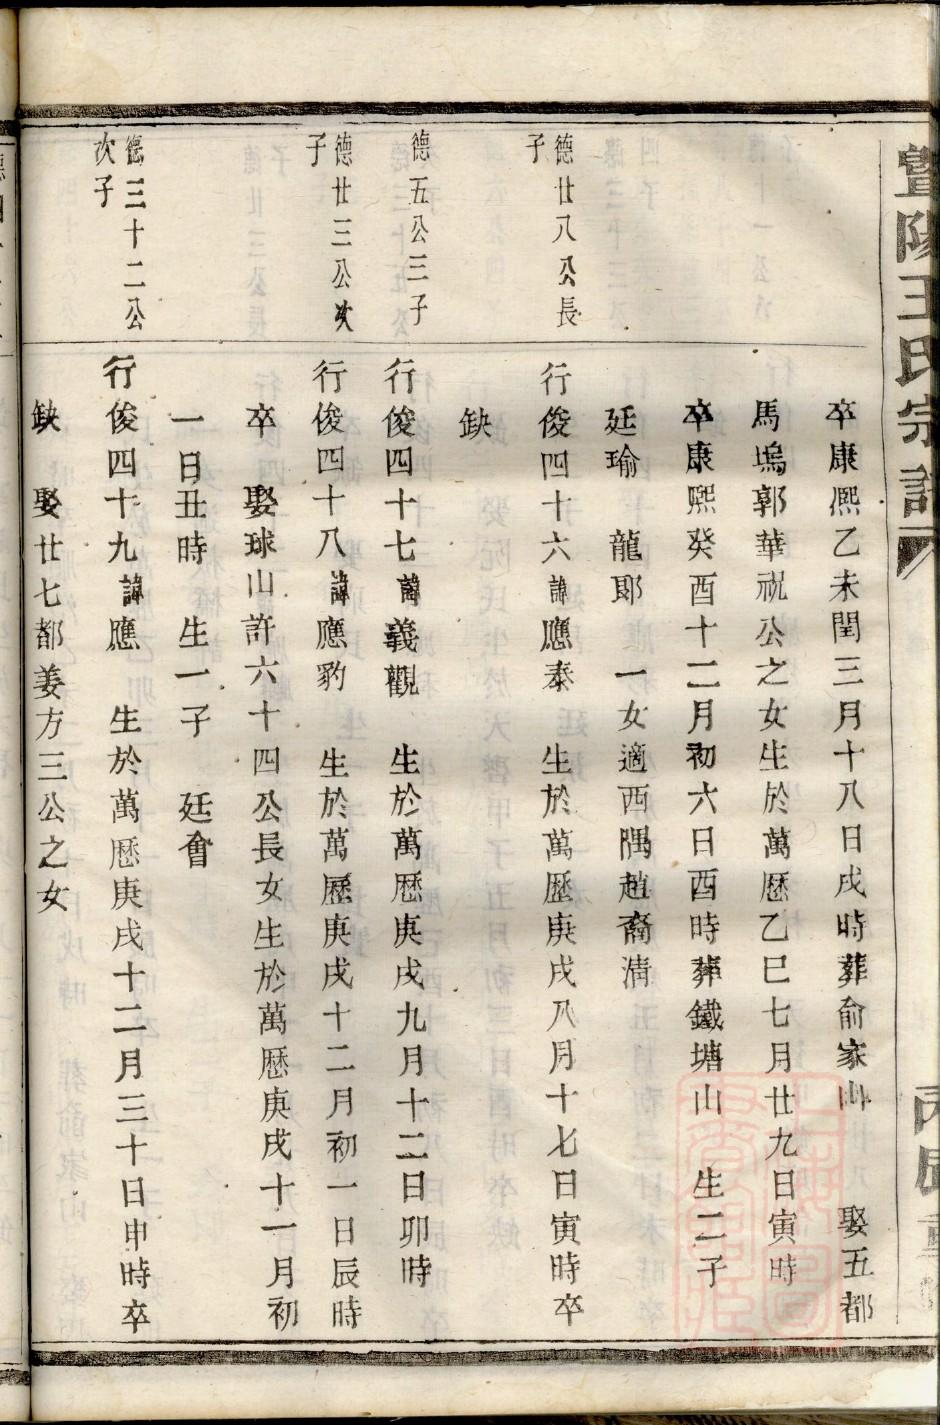 暨陽王氏宗譜
丙辰重
卒康熈乙未閏三月十八日戌時葬俞家山　娶五都
馬塢郭華祝公之女生於萬歷乙巳七月廿九日寅時
卒康熙癸酉十二月初六日酉時葬鐵塘山　生二子
廷瑜　龍郎　一女適西隅趙裔淸
德廿八公長
子
行俊四十六諱應泰　生於萬歷庚戌八月十七日寅時卒
缺
德五公三子
行俊四十七諱義觀　生於萬歷庚戌九月十二日卯時
德廿三公次
子
行俊四十八諱應豹　生於萬歷庚戌十二月初一日辰時
卒　娶球山許六十四公長女生於萬歷庚戌十一月初
一日丑時　生一子　廷會
德三十二公
次子
行俊四十九諱應　生於萬歷庚戌十二月三十日申時卒
缺　娶廿七都姜方三公之女